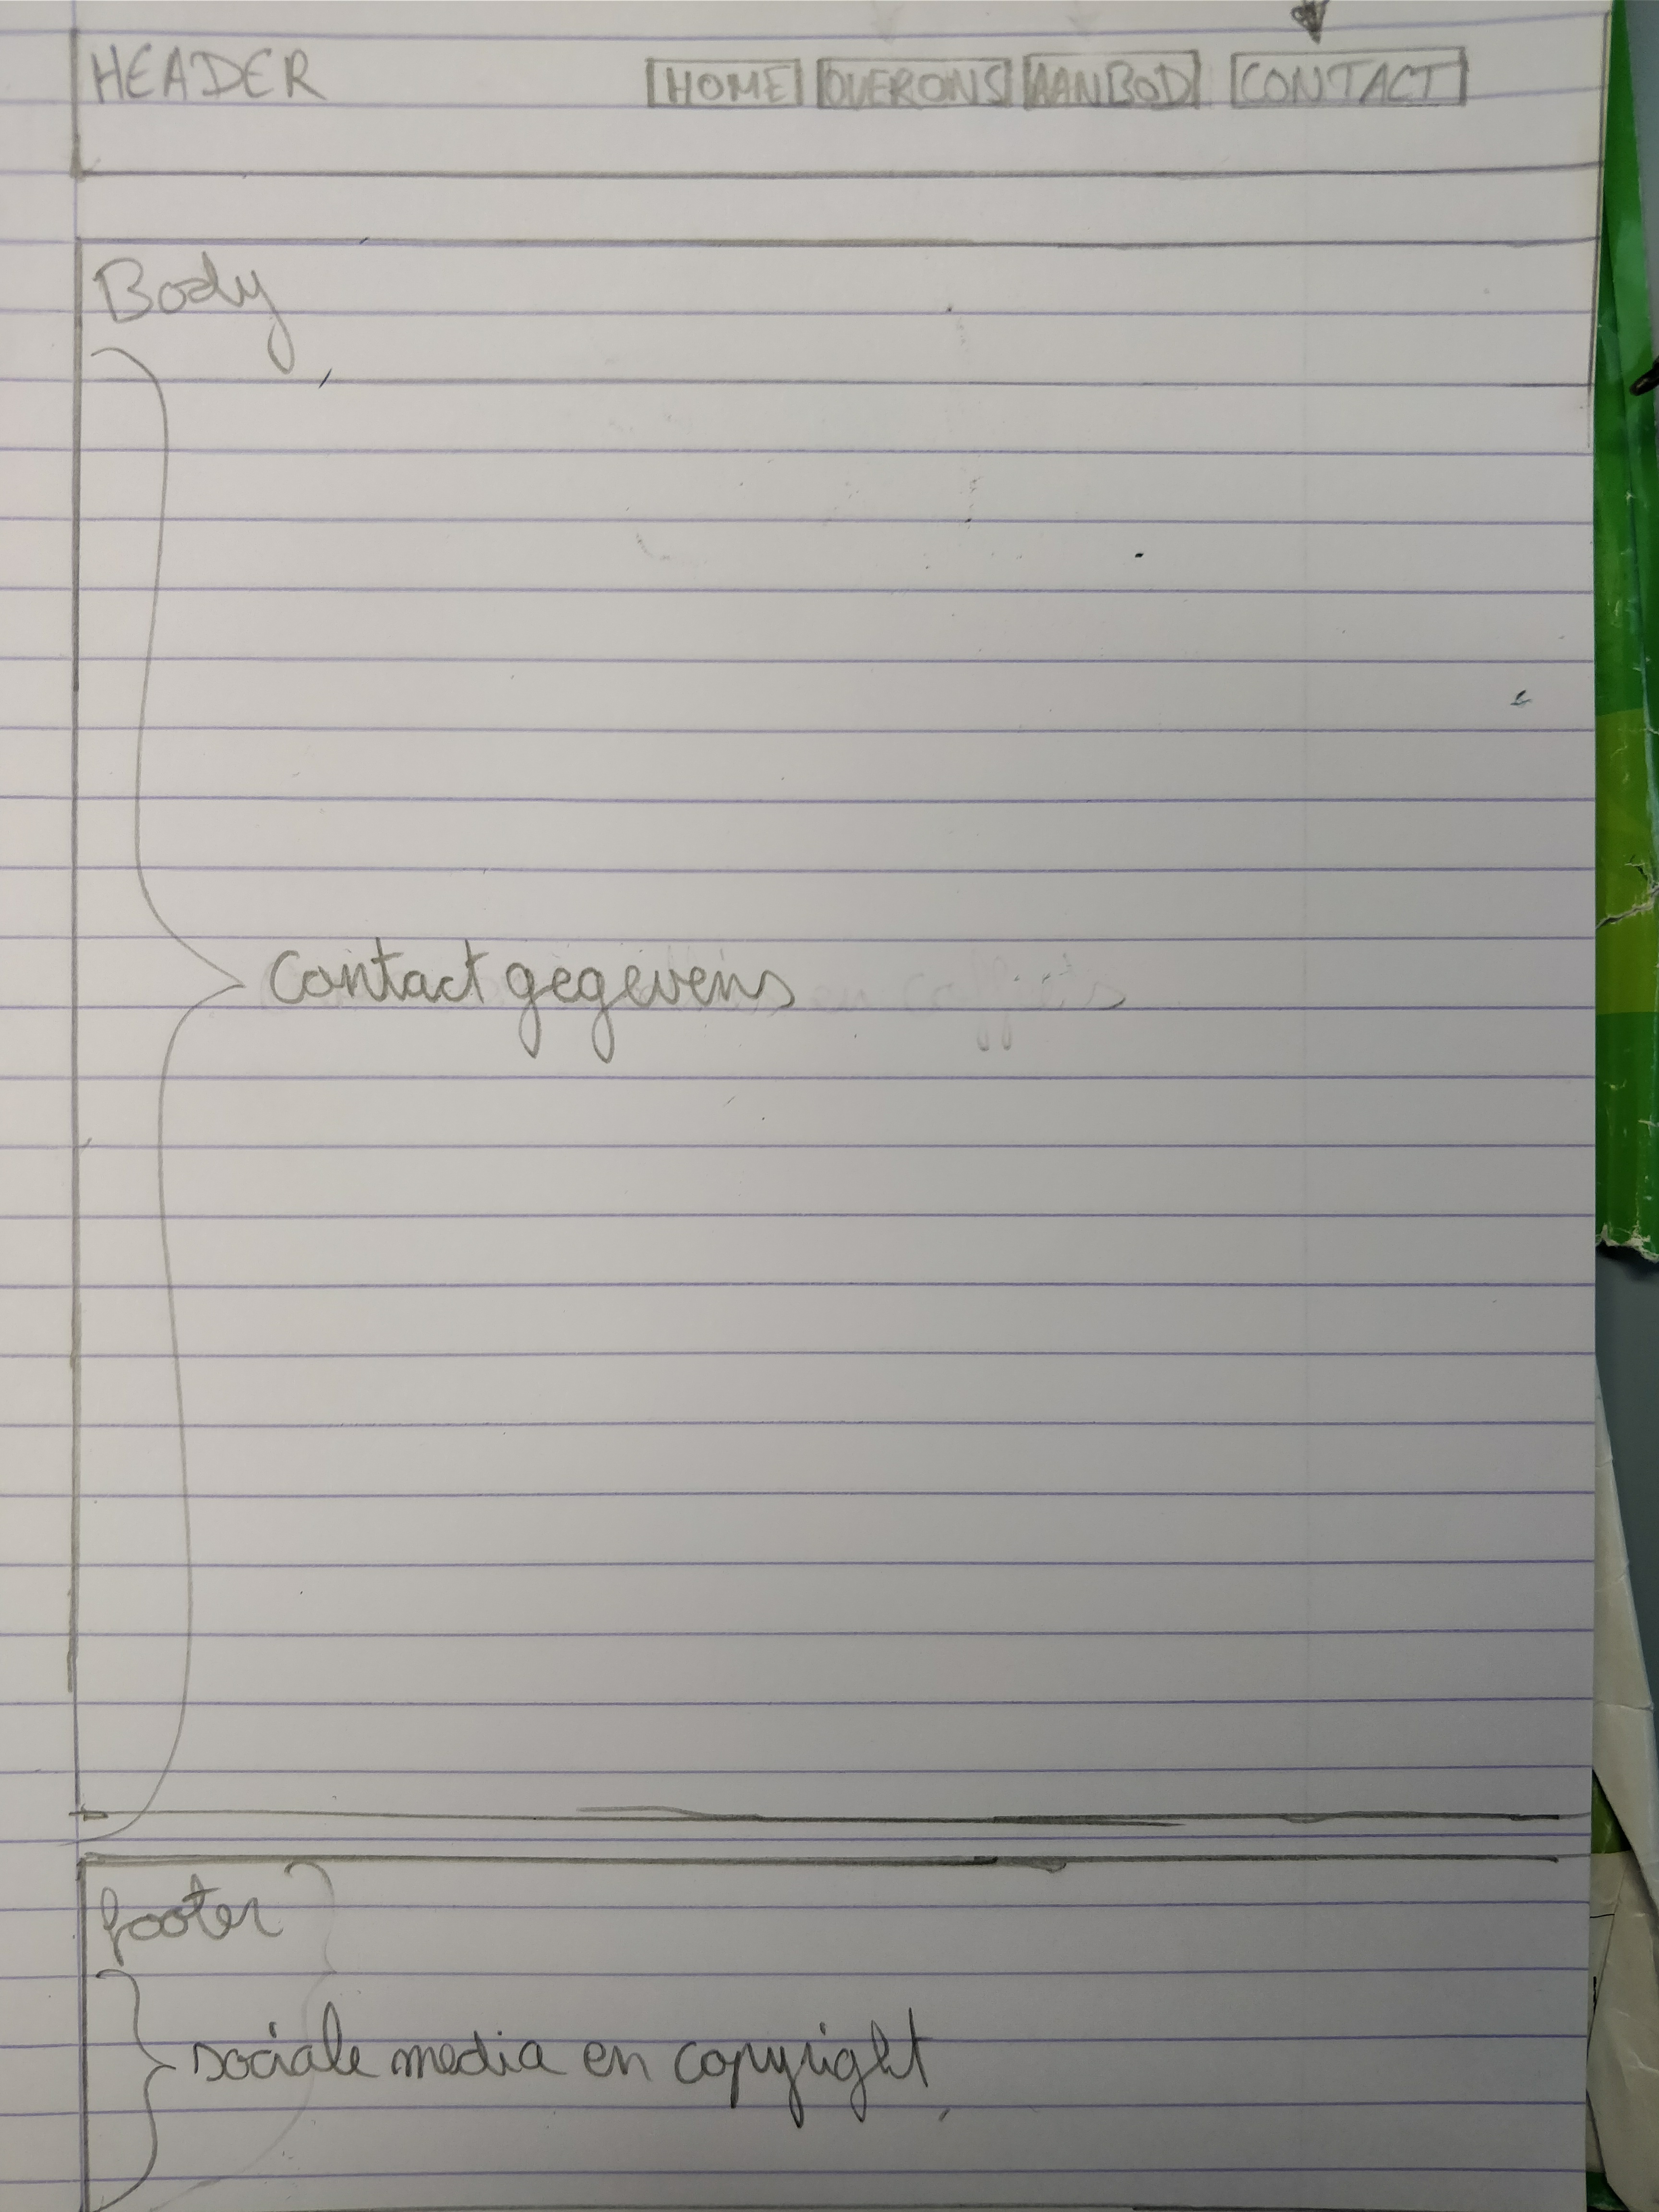 HEADER HOME OVERONS AANBOD CONTACT
Body
Contact gegevens
footer
sociale media en copyright